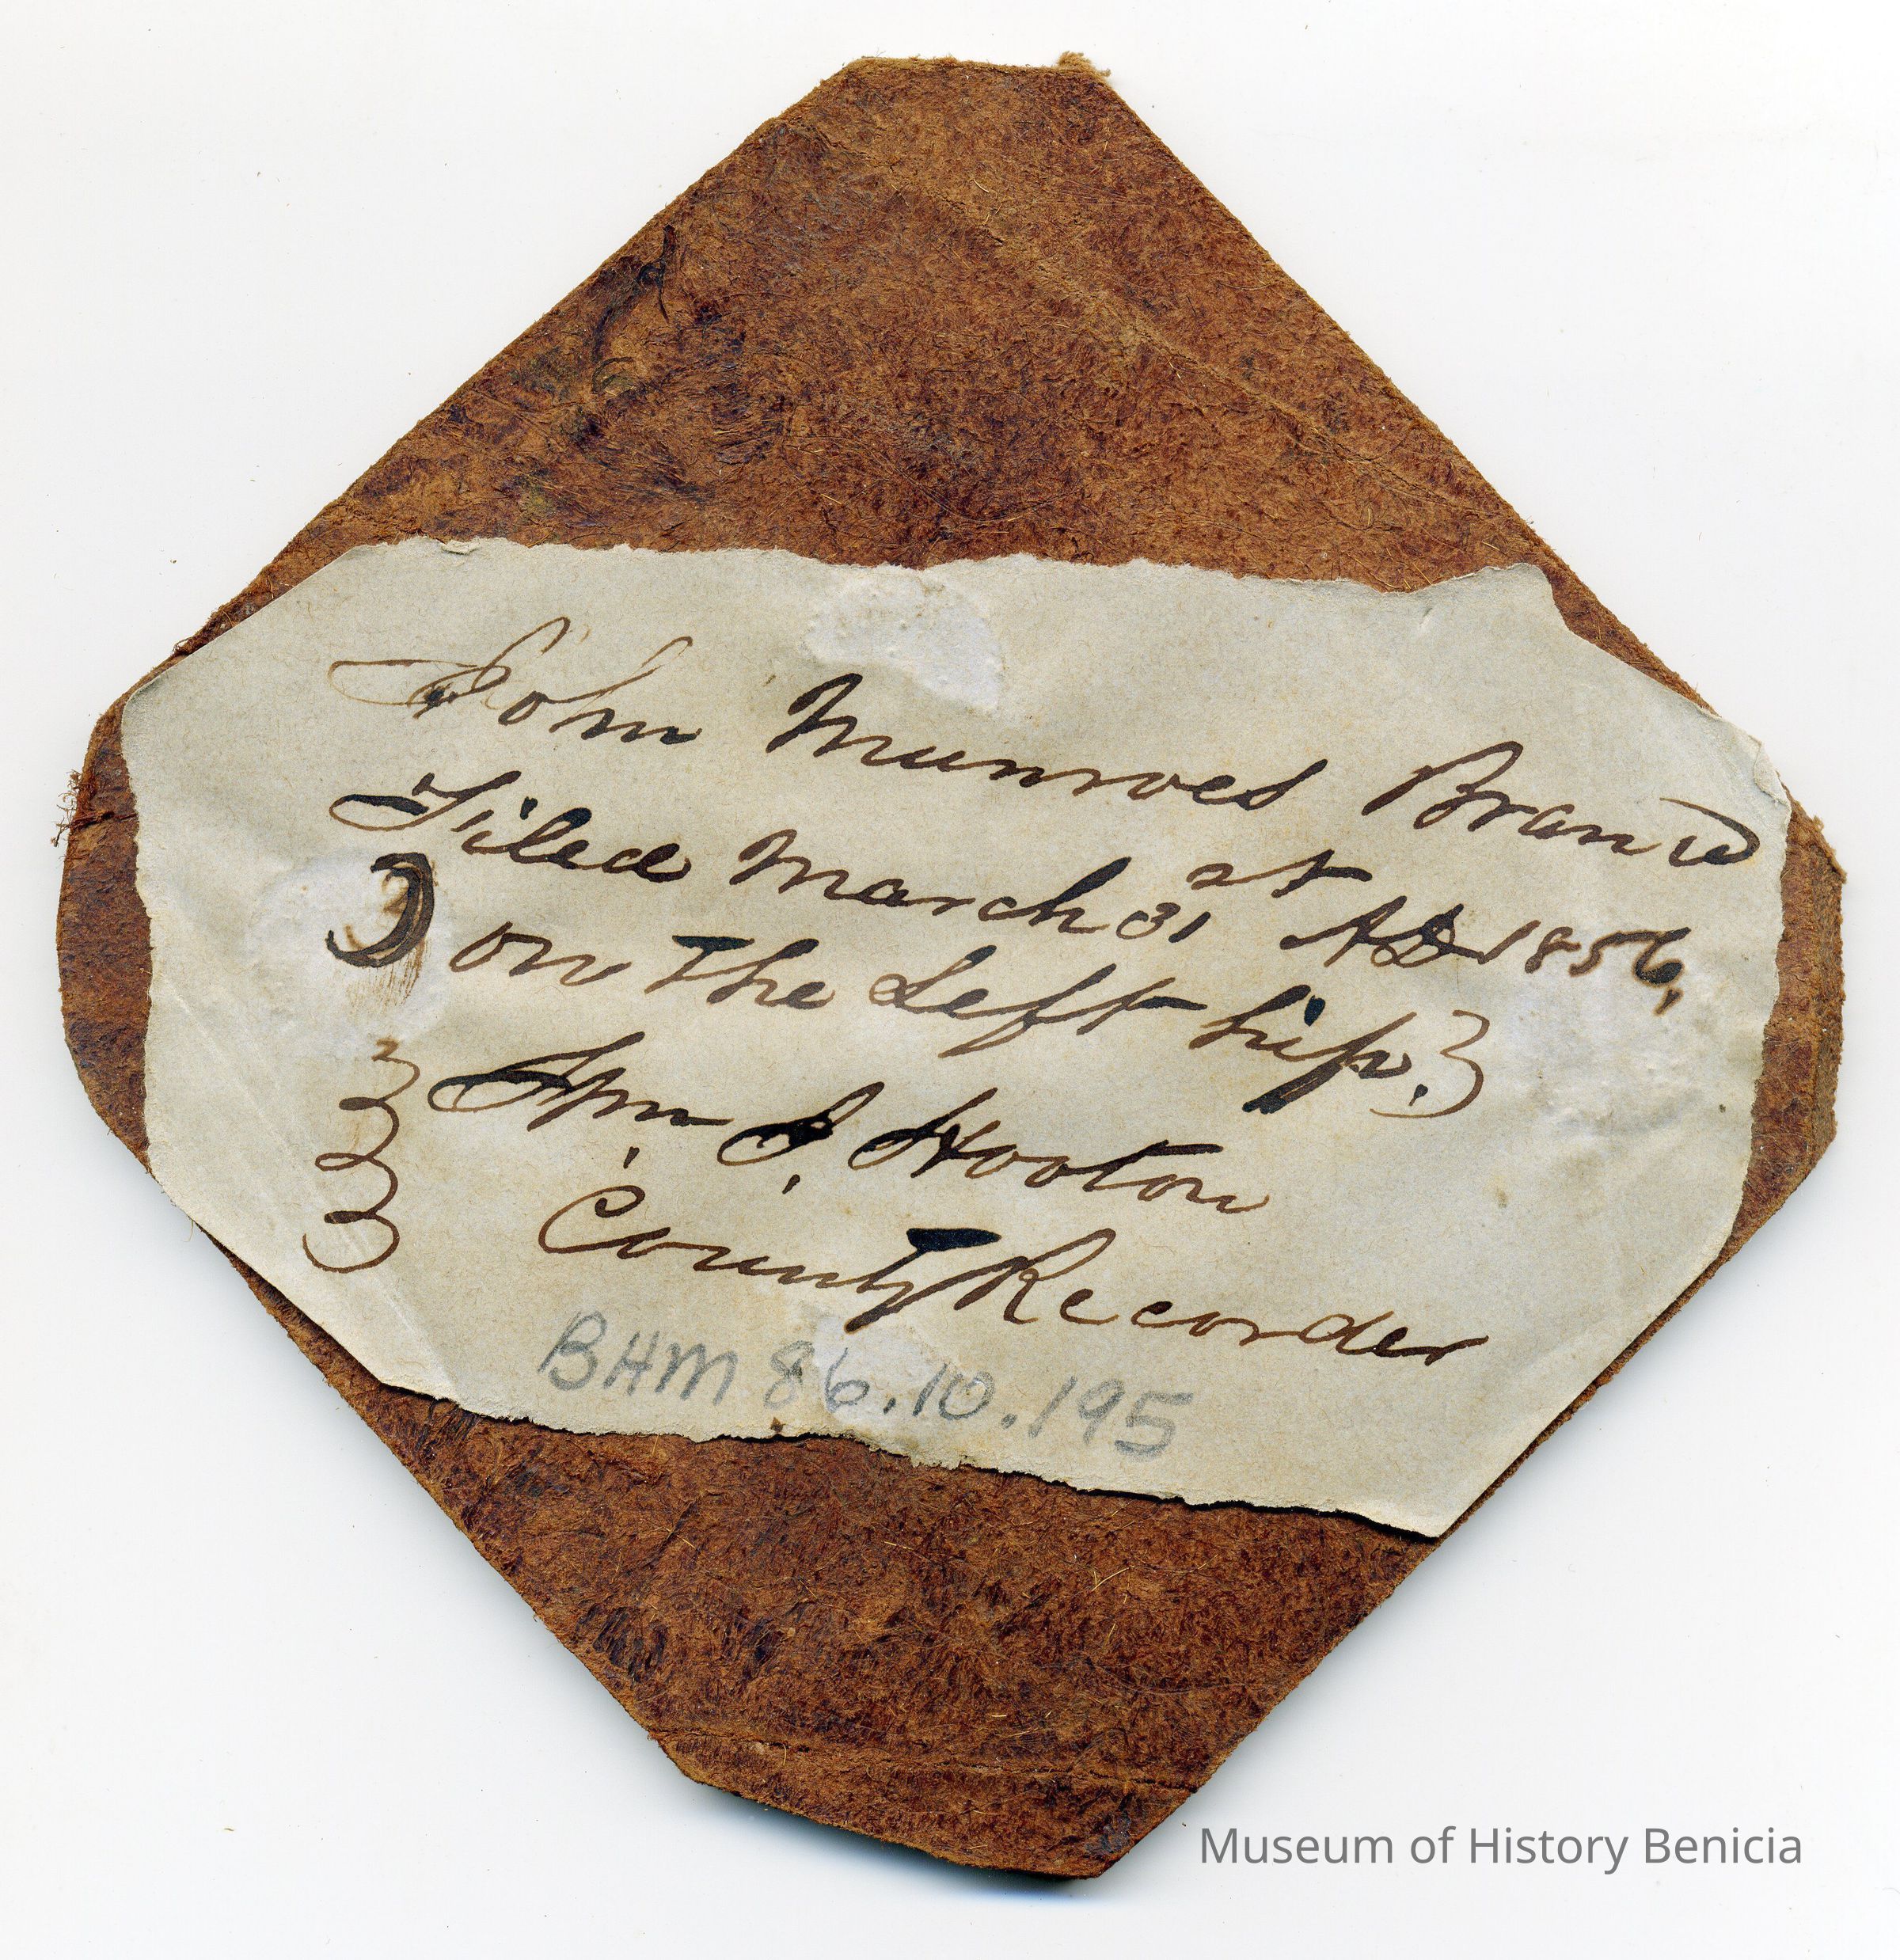 John Munroes Brand
Filed March 31st AD 1856,
on the Left hip.
Wm. J. Hooton
County Recorder
BHM 86.10.195
Museum of History Benicia